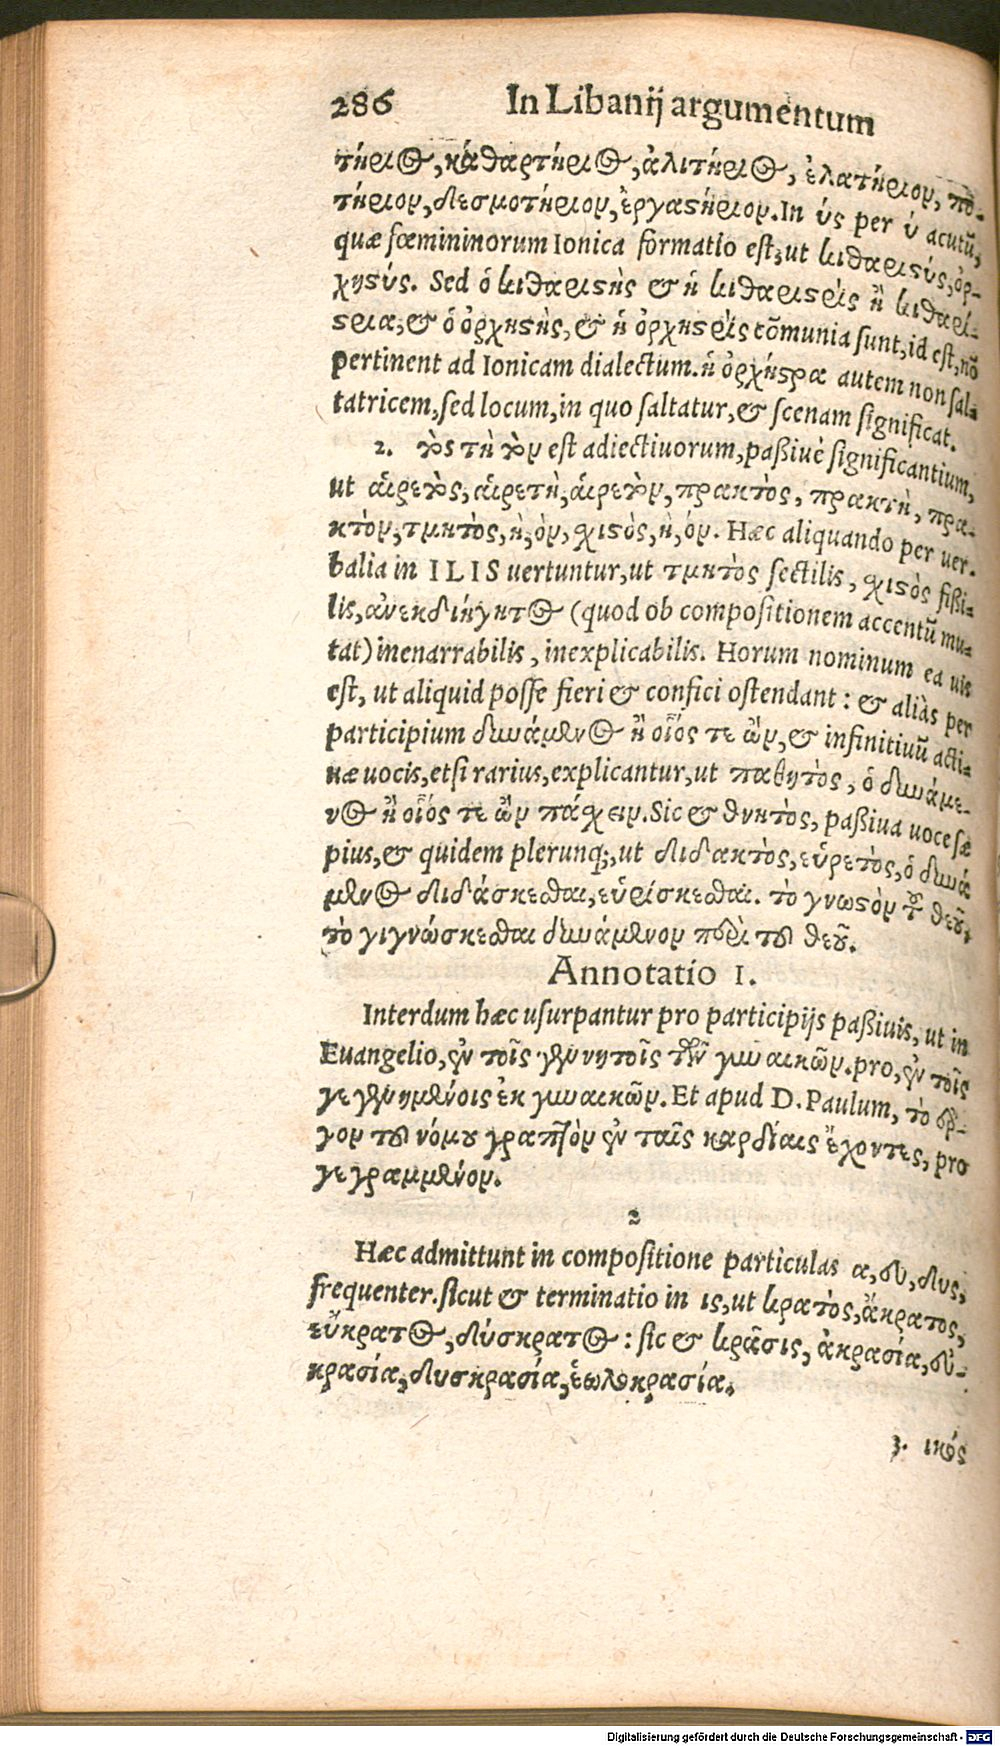 286 In Libanij argumentum
τήριος, καθαρτήριος, ἀλιτήριος, ἐλατήριον, πο-
τήριον, δεσμοτήριον, ἐργαστήριον. In ύς per ύ acutū,
quæ fœmininorum Ionica formatio est, ut κιθαριστύς, ὀρ-
χηστύς. Sed ὁ κιθαριστὴς & ἡ κιθαριστρὶς ἢ κιθαρί-
στρια, & ὁ ὀρχηστὴς, & ἡ ὀρχηστρὶς cōmunia sunt, id est, nō
pertinent ad Ionicam dialectum. ἡ ὀρχήστρα autem non sal-
tatricem, sed locum, in quo saltatur, & scenam significat.
2. τὸς τὴ τὸν est adiectiuorum, paßiuè significantium,
ut αἱρετὸς, αἱρετὴ, αἱρετὸν, πρακτὸς, πρακτὴ, πρα-
κτὸν, τμητὸς, ὴ, ὸν, χιστὸς, ὴ, όν. Hæc aliquando per uer-
balia in ILIS uertuntur, ut τμητὸς sectilis, χιστὸς fißi-
lis, ἀνεκδιήγητος (quod ob compositionem accentū mu-
tat) inenarrabilis, inexplicabilis. Horum nominum ea uis
est, ut aliquid posse fieri & confici ostendant: & aliàs per
participium δυνάμενος ἢ οἷός τε ὢν, & infinitiuū acti-
uæ uocis, etsi rarius, explicantur, ut παθητὸς, ὁ δυνάμε-
νος ἢ οἷός τε ὢν πάχειν. Sic & θνητὸς, paßiua uoce sæ
pius, & quidem plerunq;, ut διδακτὸς, εὑρετὸς, ὁ δυνά
μενος διδάσκεσθαι, εὑρίσκεσθαι. τὸ γνωστὸν τοῦ θεοῦ,
τὸ γιγνώσκεσθαι δυνάμενον περὶ τοῦ θεοῦ.
Annotatio 1.
Interdum hæc usurpantur pro participijs paßiuis, ut in
Euangelio, ἐν τοῖς γεννητοῖς τῶν γυναικῶν. pro, ἐν τοῖς
γεγεννημένοις ἐκ γυναικῶν. Et apud D. Paulum, τὸ ἔρ-
γον τοῦ νόμου γραπτὸν ἐν ταῖς καρδίαις ἔχοντες, pro
γεγραμμένον.
2
Hæc admittunt in compositione particulas α, ευ, δυς,
frequenter. sicut & terminatio in ις, ut κρατὸς, ἄκρατος,
εὔκρατος, δύσκρατος: sic & κρᾶσις, ἀκρασία, εὐ-
κρασία, δυσκρασία, ἑωλοκρασία.
3. ικός
Digitalisierung gefördert durch die Deutsche Forschungsgemeinschaft - DFG